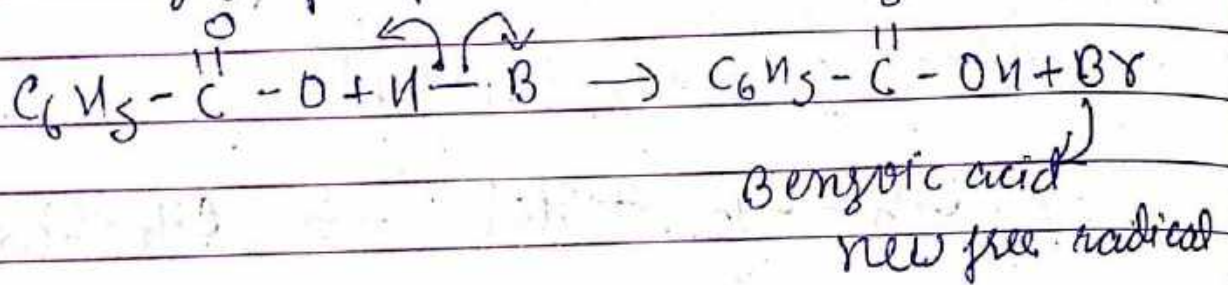 O
C6H5 - C - O + H - B → C6H5 - C - OH + Br
Benzoic acid
new free radical